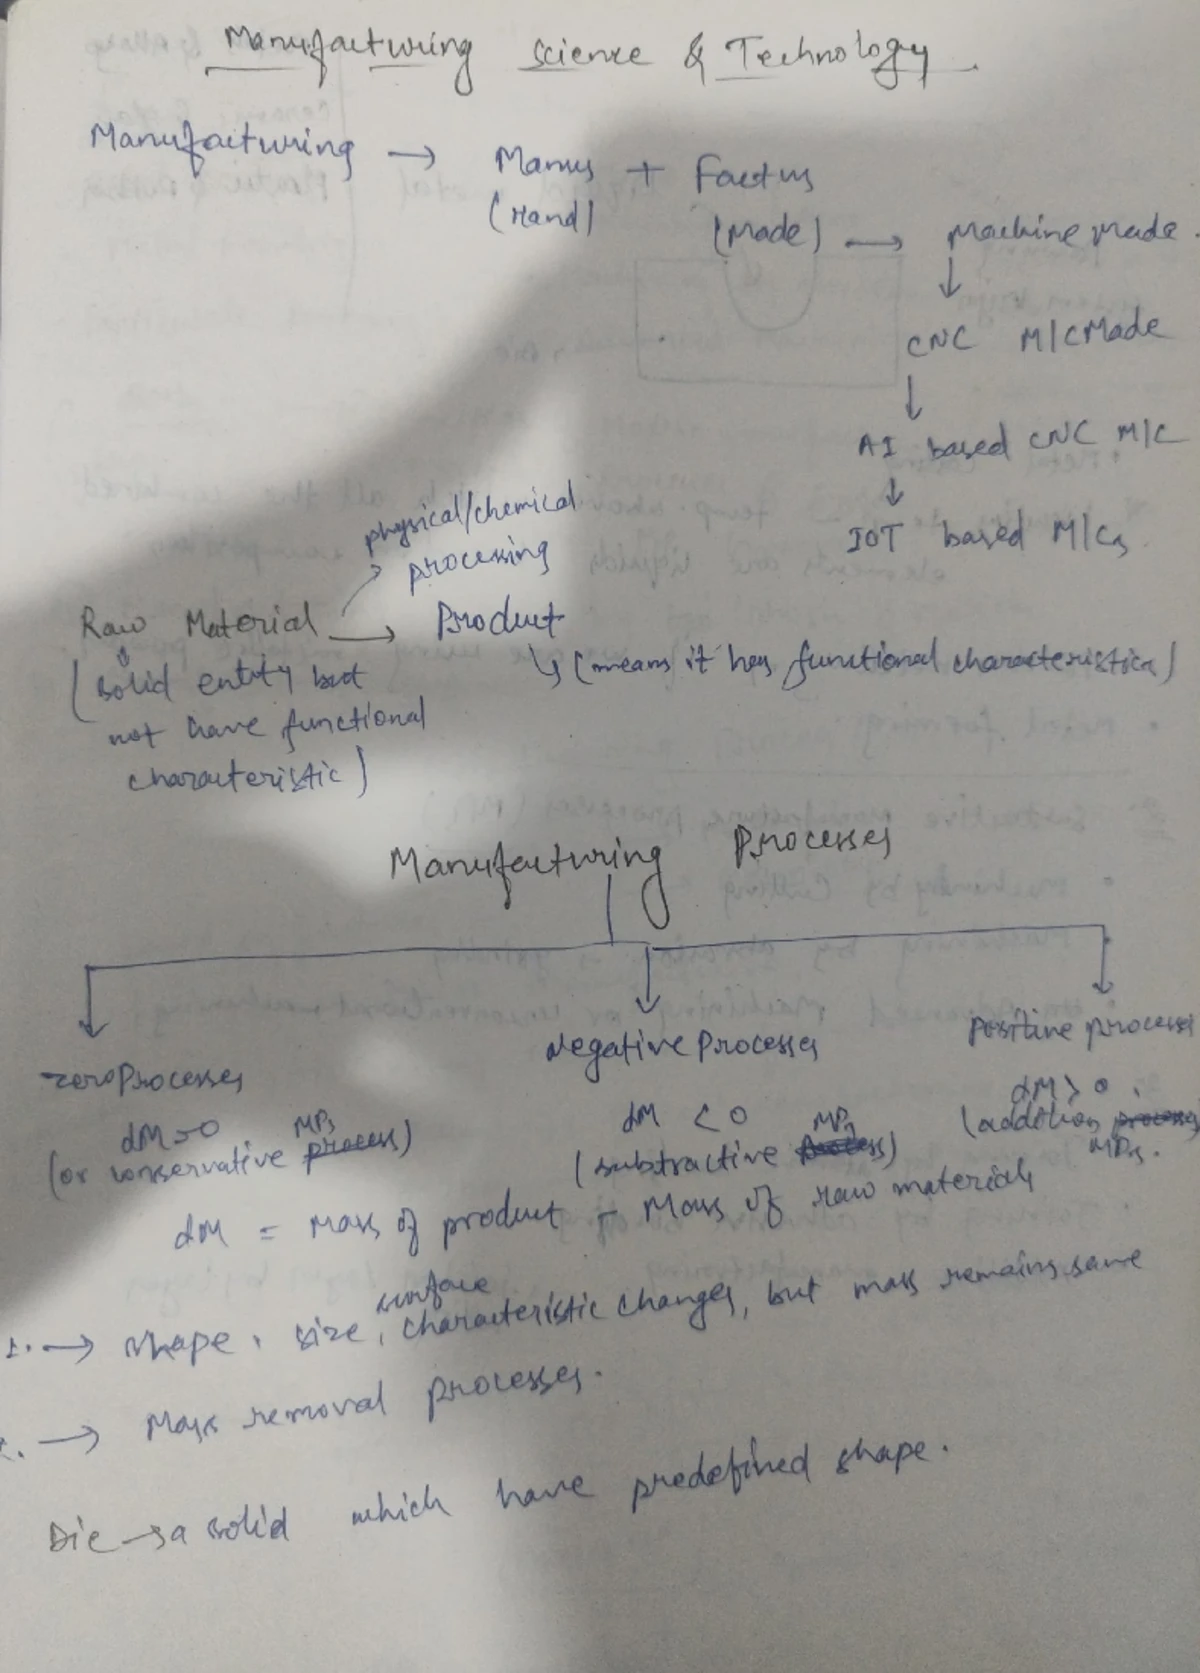 Manufacturing Science & Technology
Manufacturing → Manus + Factus
(Hand) (Made) → Machine Made.
↓
CNC M/C Made
↓
AI based CNC M/C
↓
IOT based M/Cs
physical/chemical
processing
Raw Material → Product
(solid entity but
not have functional
characteristic)
↳ (means it has functional characteristics)
Manufacturing Processes
zero Processes
dM = 0
(or conservative MPs)
Negative Processes
dM < 0
(subtractive MPs)
Positive processes
dM > 0
(addition MPs.
dM = Mass of product - Mass of raw materials
1. → shape, size, surface characteristic changes, but mass remains same
→ Mass removal processes.
Die → a solid which have predefined shape.